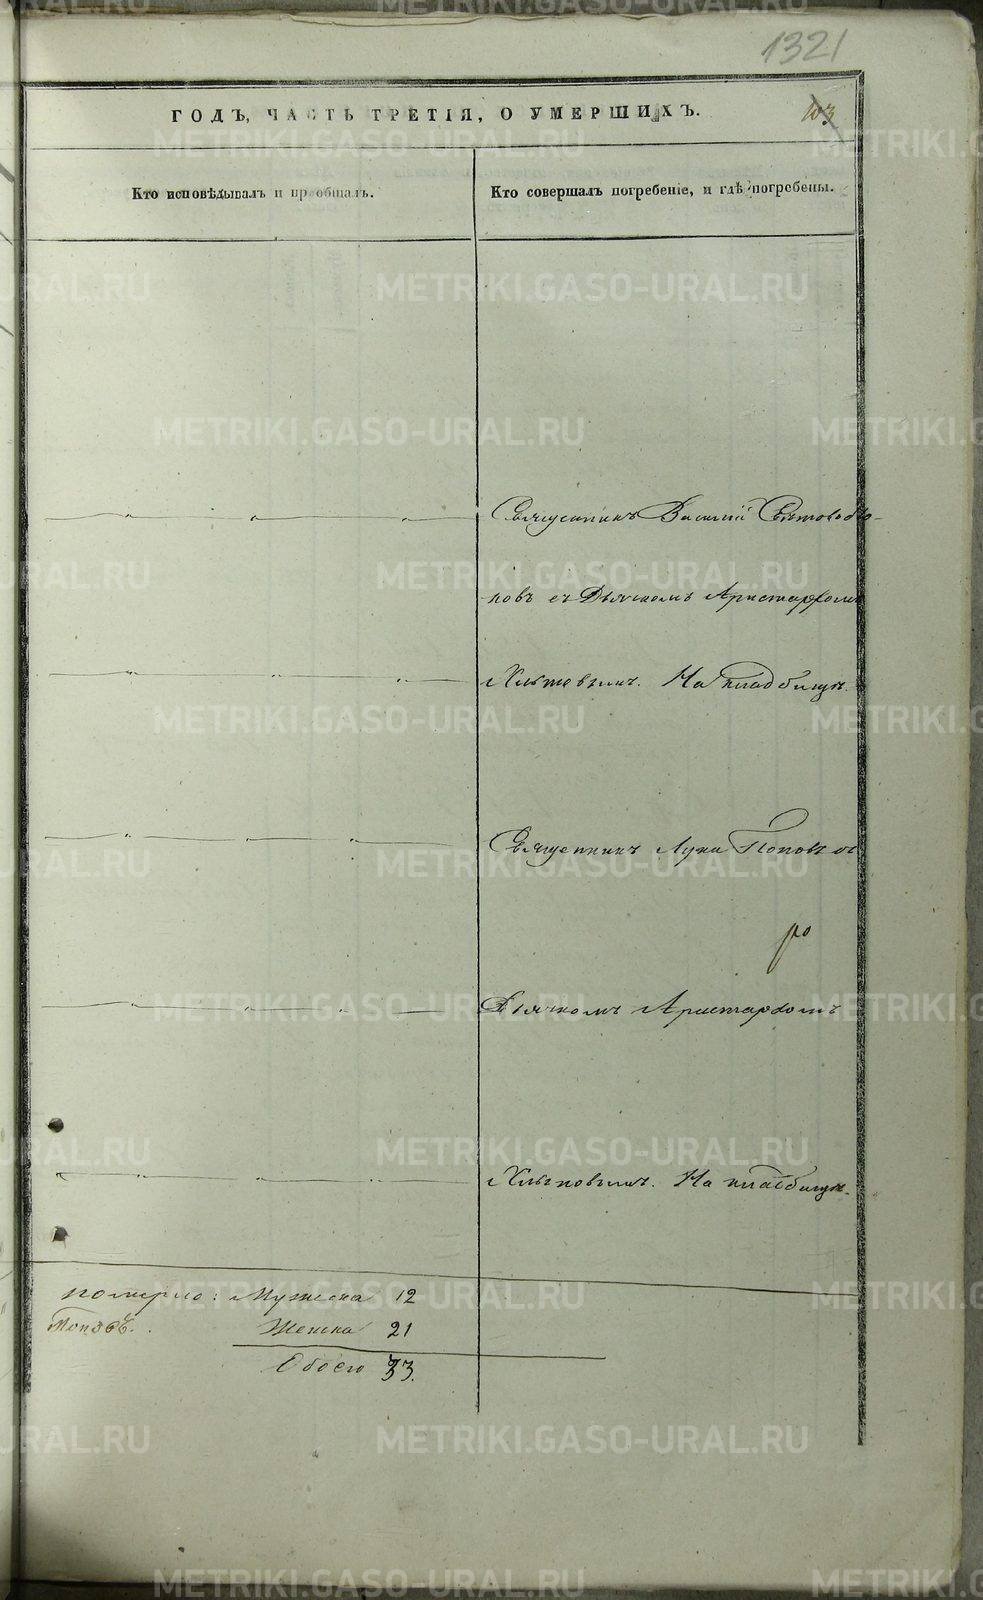 1321
ГОДЪ, ЧАСТЬ ТРЕТІЯ, О УМЕРШИХЪ.
103
Кто исповѣдывалъ и пріобщалъ.
Кто совершалъ погребеніе, и гдѣ погребены.
Священникъ Василій
новъ съ Дьячкомъ Аристархомъ
На кладбищѣ.
Священникъ Лука Поповъ съ
Дьячкомъ Аристархомъ
На кладбищѣ.
померло: Мужеска 12
Женска 21
Обоего 33.
METRIKI.GASO-URAL.RU